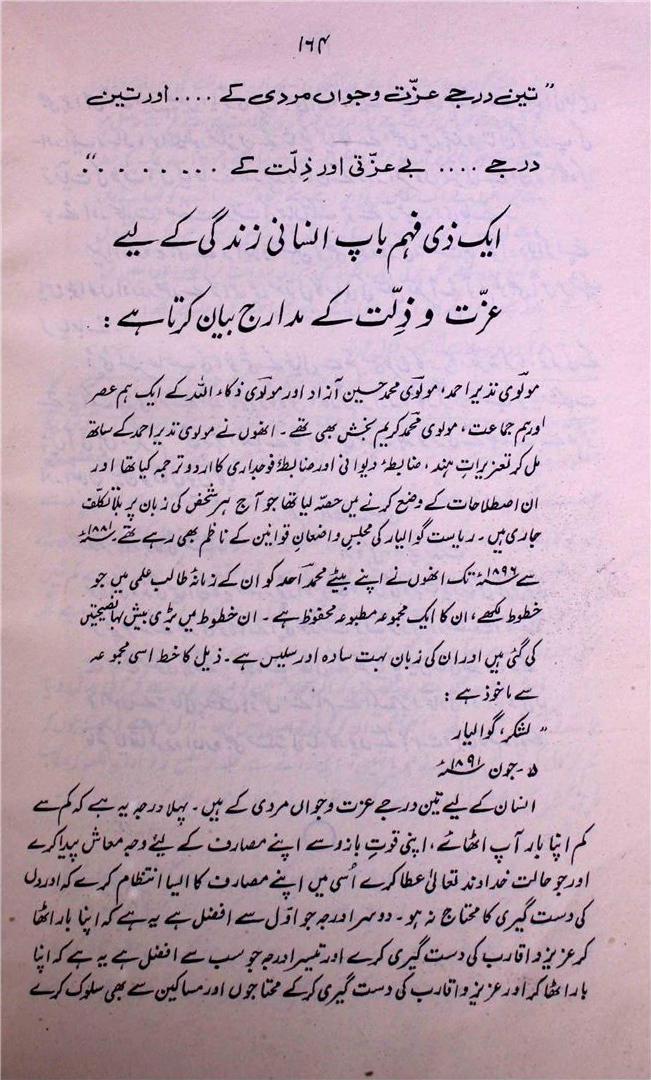 ۱۶۴
"تین درجے عزّت و جواں مردی کے .... اور تین
درجے .... بے عزّتی اور ذِلّت کے ........"
ایک ذی فہم باپ انسانی زندگی کے لیے
عزّت و ذِلّت کے مدارج بیان کرتا ہے:
مولوی نذیر احمد، مولوی محمد حسین آزاد اور مولوی ذکاء اللہ کے ایک ہم عصر
اور ہم جماعت، مولوی محمد کریم بخش بھی تھے۔ انھوں نے مولوی نذیر احمد کے ساتھ
مل کر تعزیراتِ ہند، ضابطۂ دیوانی اور ضابطۂ فوجداری کا اردو ترجمہ کیا تھا اور
ان اصطلاحات کے وضع کرنے میں حصّہ لیا تھا جو آج ہر شخص کی زبان پر بلا تکلّف
جاری ہیں۔ ریاست گوالیار کی مجلسِ واضعانِ قوانین کے ناظم بھی رہے تھے۔ ۱۸۸۱ء
سے ۱۸۹۶ء تک انھوں نے اپنے بیٹے محمد احمد کو ان کے زمانۂ طالب علمی میں جو
خطوط لکھے، ان کا ایک مجموعہ مطبوعہ محفوظ ہے۔ ان خطوط میں بڑی بیش بہا نصیحتیں
کی گئی ہیں اور ان کی زبان بہت سادہ اور سلیس ہے۔ ذیل کا خط اسی مجموعہ
سے ماخوذ ہے:
"لشکر، گوالیار
۵۔ جون ۱۸۹۱ء
انسان کے لیے تین درجے عزت و جواں مردی کے ہیں۔ پہلا درجہ یہ ہے کہ کم سے
کم اپنا بار آپ اٹھائے، اپنی قوتِ بازو سے اپنے مصارف کے لیئے وجہ معاش پیدا کرے
اور جو حالت خداوند تعالیٰ عطا کرے اُسی میں اپنے مصارف کا ایسا انتظام کرے کہ اوردں
کی دست گیری کا محتاج نہ ہو۔ دوسرا درجہ جو اوّل سے افضل ہے یہ ہے کہ اپنا بار اٹھا
کر عزیز و اقارب کی دست گیری کرے اور تیسرا درجہ جو سب سے افضل ہے یہ ہے کہ اپنا
بار اٹھا کر اور عزیز و اقارب کی دست گیری کرکے محتاجوں اور مساکین سے بھی سلوک کرے